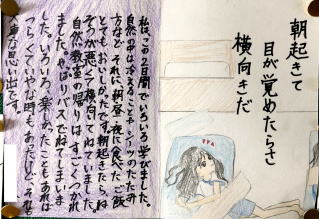 朝起きて
目が覚めたらさ
横向きだ
私は、この2日間でいろいろ学びました。
自然の中は冷えることや、シーツのたたみ
方など。それに、朝昼夜に食べたご飯
とてもおいしかったです。朝起きたら、ね
ぞうが悪くて横向でねていました。
自然教室の帰りはすごくつかれ
ました。やっぱりバスでねてしまいま
した。いろいろ、楽しかったこともあれば
つらくていやな時もあったけど、それ